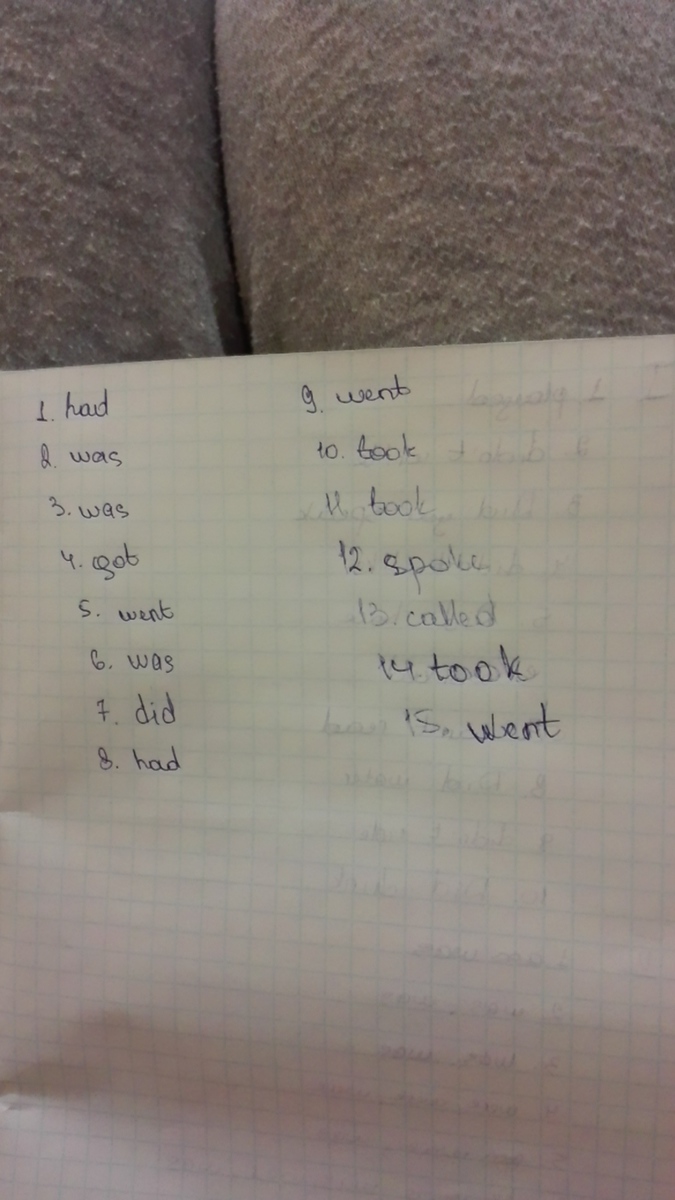 1. had
2. was
3. was
4. got
5. went
6. was
7. did
8. had
9. went
10. took
11. took
12. spoke
13. called
14. took
15. went